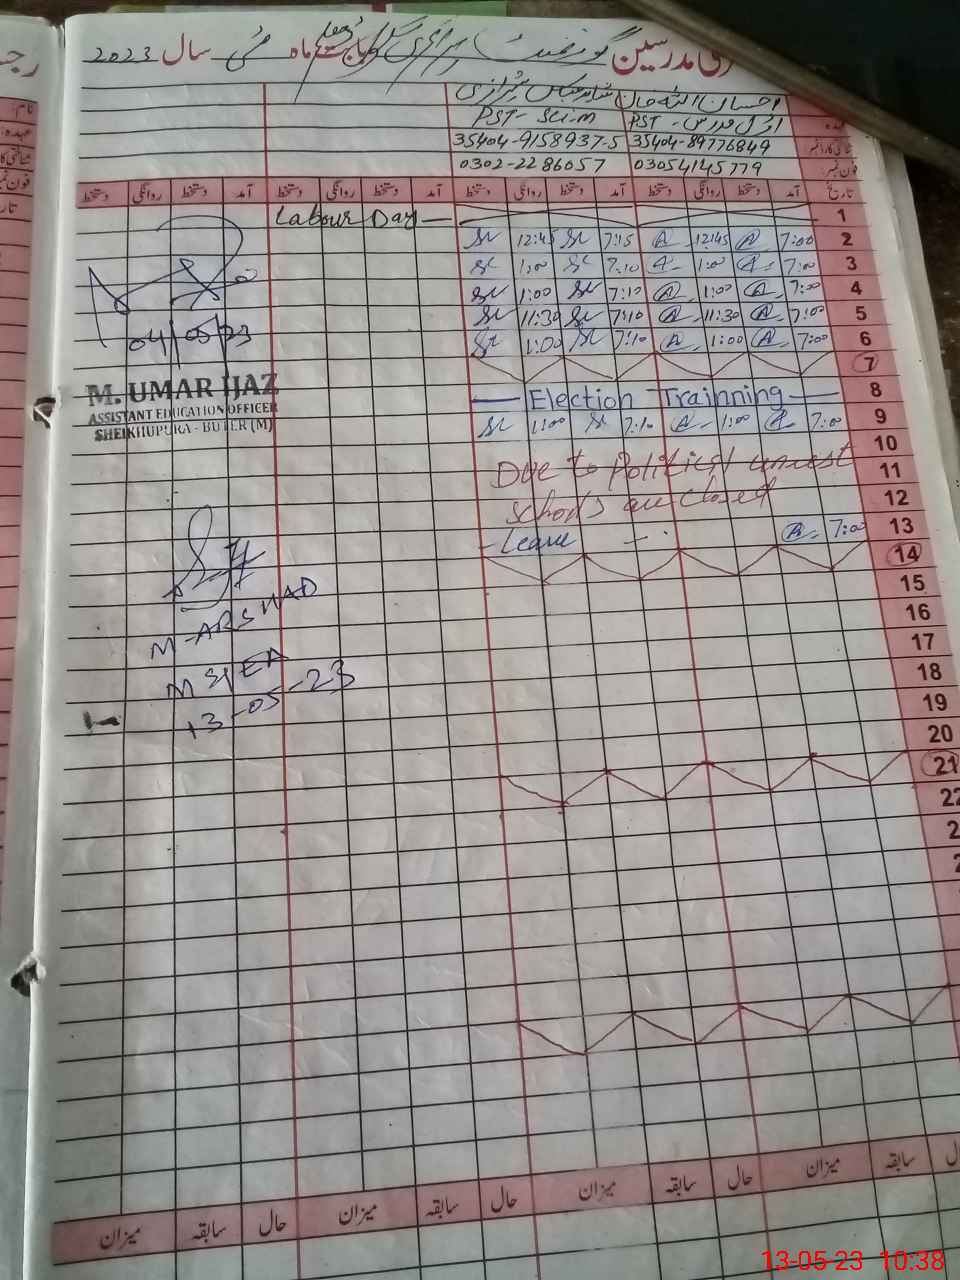 حاضری مدرسین گورنمنٹ پرائمری سکول بابت ماہ مئی سال 2023
احسان اللہ خان شاہد عباس شیرازی
PST - Sci-m
35404-89776849 35404-9158937-5
فون نمبر 03054145779 0302-2286057
تاریخ آمد دستخط روانگی دستخط آمد دستخط روانگی دستخط آمد دستخط روانگی دستخط آمد دستخط روانگی دستخط
1 Labour Day
2 7:00 12:45 7:15 12:45
3 7:00 1:00 7:10 1:00
4 7:00 1:00 7:10 1:00
5 7:00 11:30 7:10 11:30
6 7:00 1:00 7:10 1:00
04/05/23
7
M. UMAR IJAZ
ASSISTANT EDUCATION OFFICER
SHEIKHUPURA - BUTER (M)
8 Election Trainning
9 7:00 1:00 7:10 1:00
10
11 Due to Political unrest
12 schools are closed
13 7:00 Leave
14
15
M-ARSHAD
16
17
18
13-05-23
19
20
21
22
میزان سابقہ حال میزان سابقہ حال میزان سابقہ حال
13-05-23 10:38